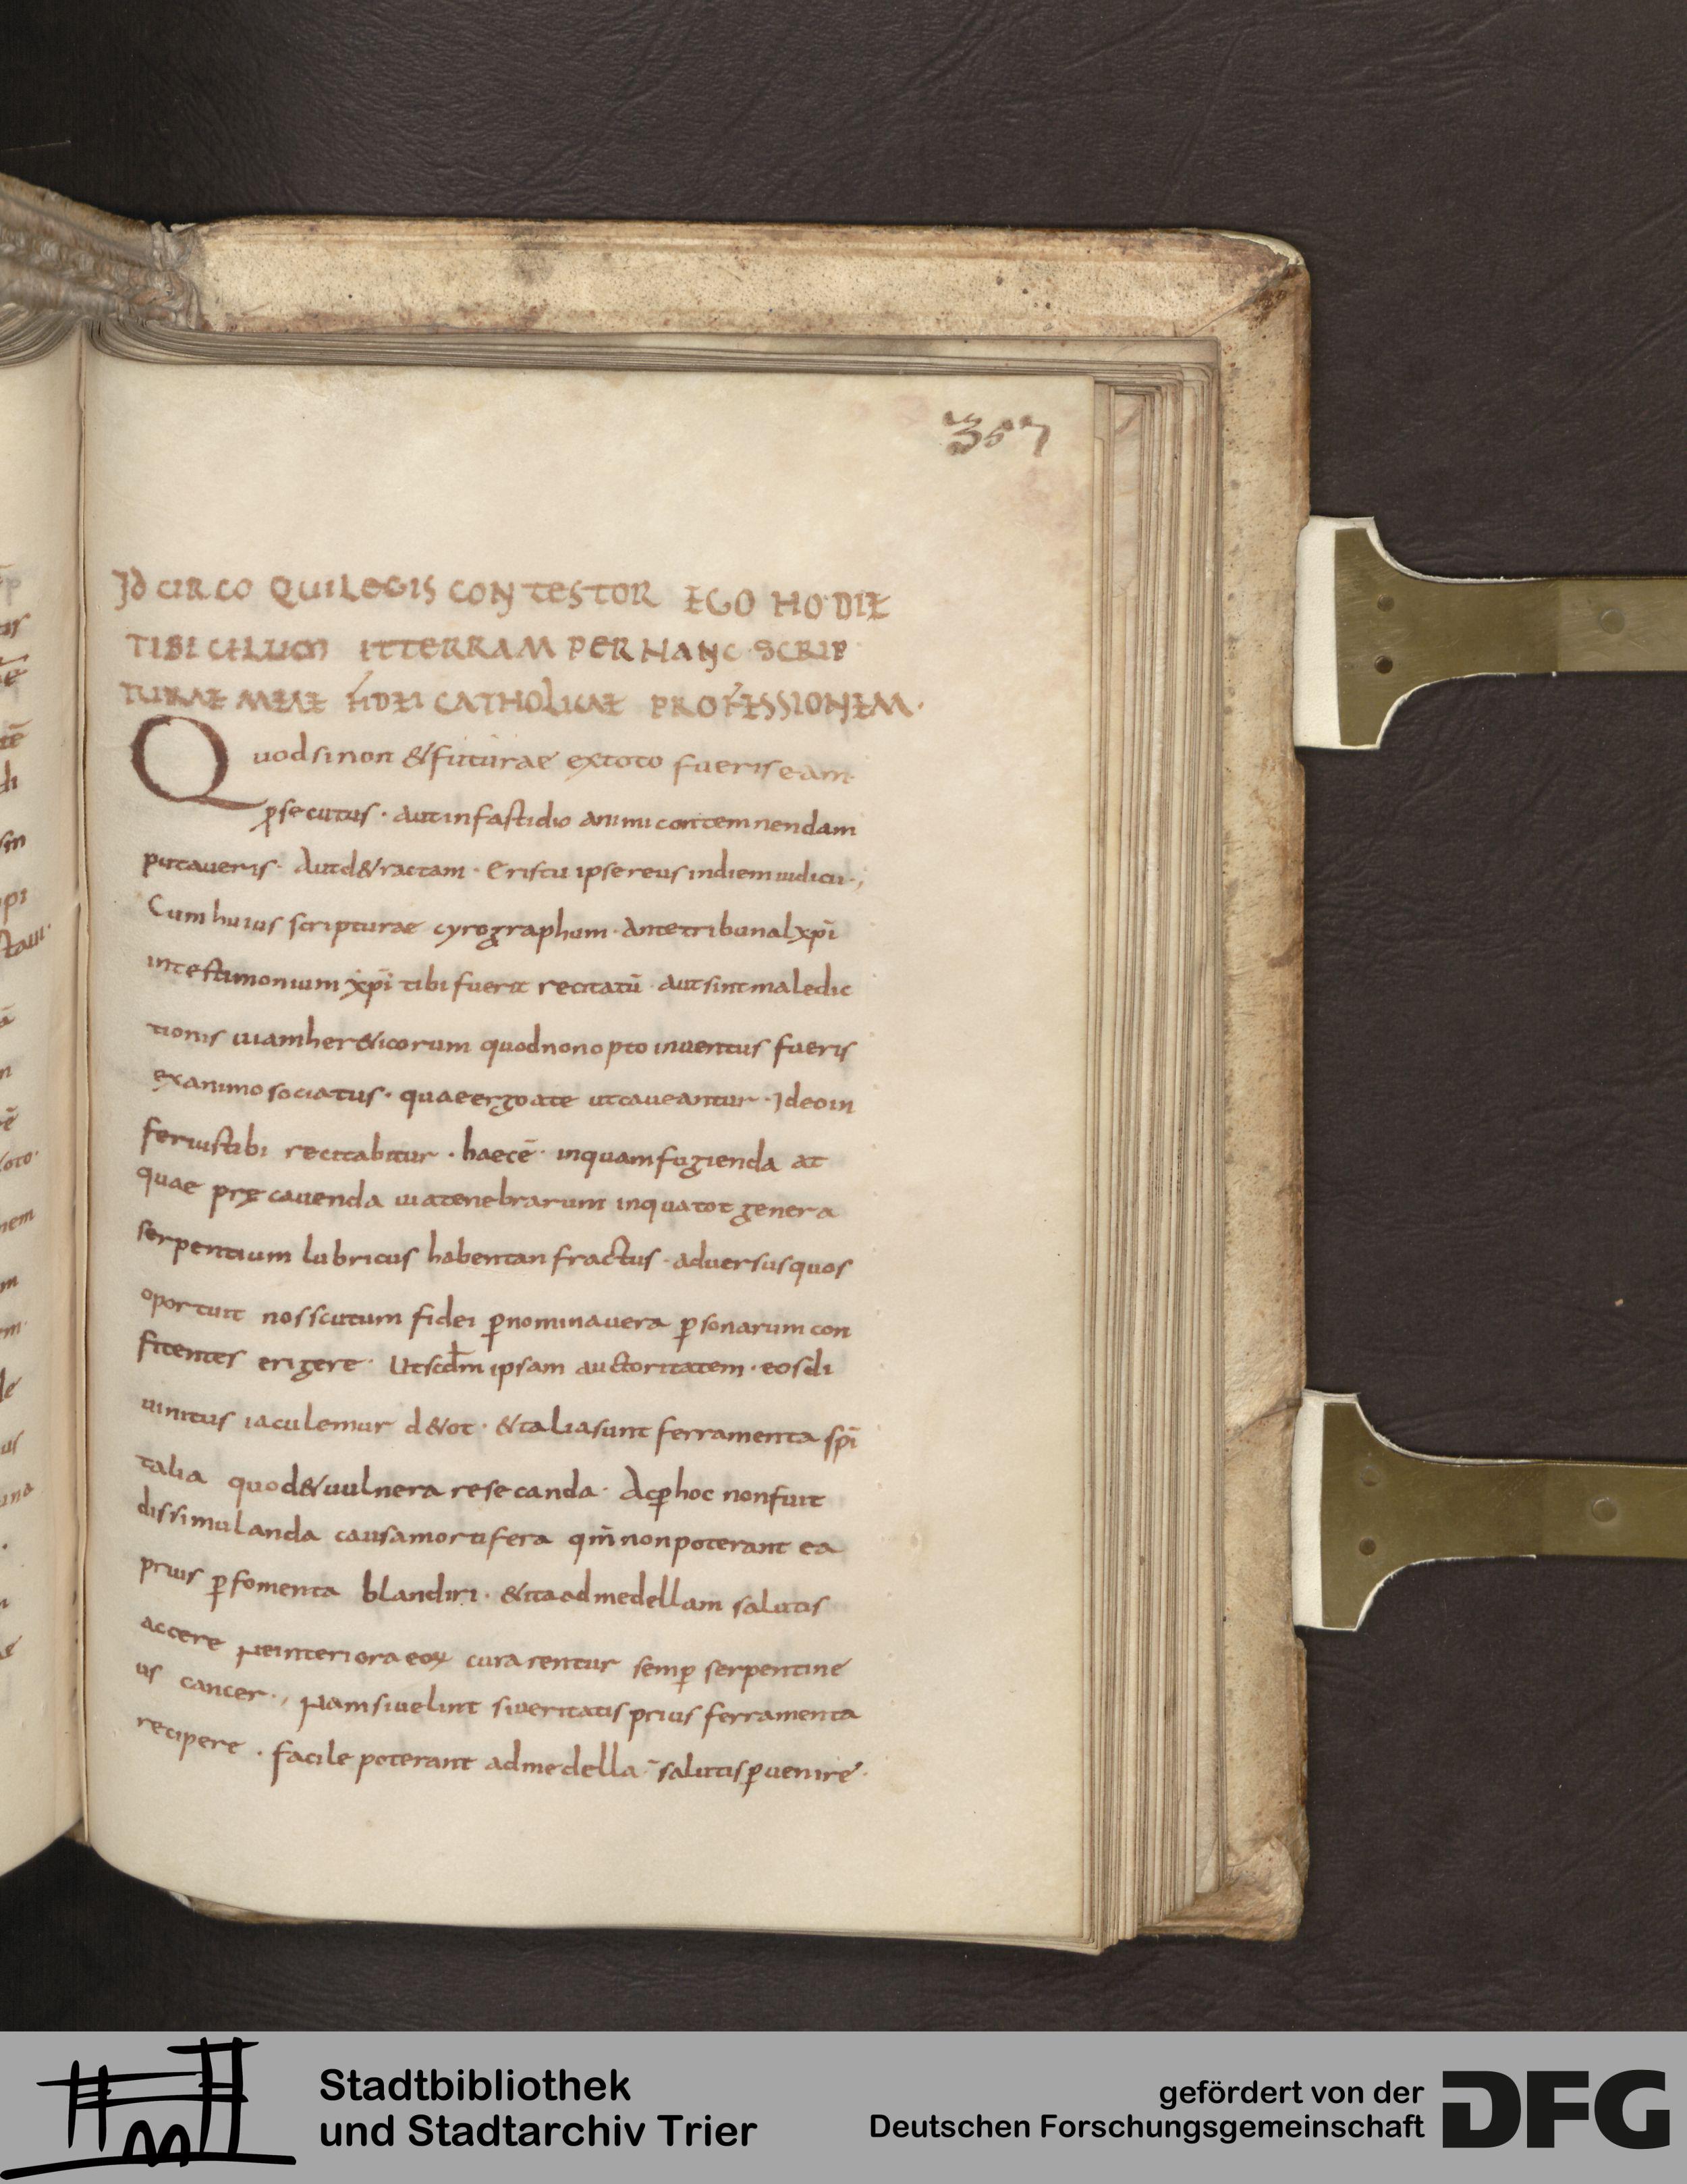 357
Id CIRCO QUI LEGIS CONTESTOR EGO HODIE
TIBI CELUM ET TERRAM PER HANC SCRIP
TURAE MEAE FIDEI CATHOLICAE PROFESSIONEM.
Quod si non & futurae ex toto fueris eam
p̱secutus · aut in fastidio animi contemnendam
putaueris · Aut d&ractam · Eris tu ipse reus in diem iudicii ·,
Cum huius scripturae cyrographum · Ante tribunal xp̄i
in testimonium xp̄i tibi fuerit recitatū · aut sint maledic
tionis uiam her&icorum quod non opto inuentus fueris
ex animo sociatus · quae ergo a te ut caueantur · Ideo in
ferius tibi recitabitur · haec ē · inquam fugienda at
quae pręcauenda uia tenebrarum in qua tot genera
serpentium lubricus habent anfractus · aduersus quos
oportuit nos scutum fidei p̱ nomina uera p̱sonarum con
fitentes erigere · Ut scdm̄ ipsam auctoritatem · eos di
uinitus iaculemur d&ot · & talia sunt ferramenta sp̄i
talia quod & uulnera resecanda · Ac p̱ hoc non fuit
dissimulanda causa mortifera qm̄ non poterant ea
prius p̱ fomenta blandiri · & ita ad medellam salutis
accere Ne interiora eoꝝ curarentur semp̱ serpentine
us cancer ·, Nam si uelint si ueritatis prius ferramenta
recipere · facile poterant ad medellā salutis p̱uenire ·
Stadtbibliothek
und Stadtarchiv Trier
gefördert von der
Deutschen Forschungsgemeinschaft
DFG